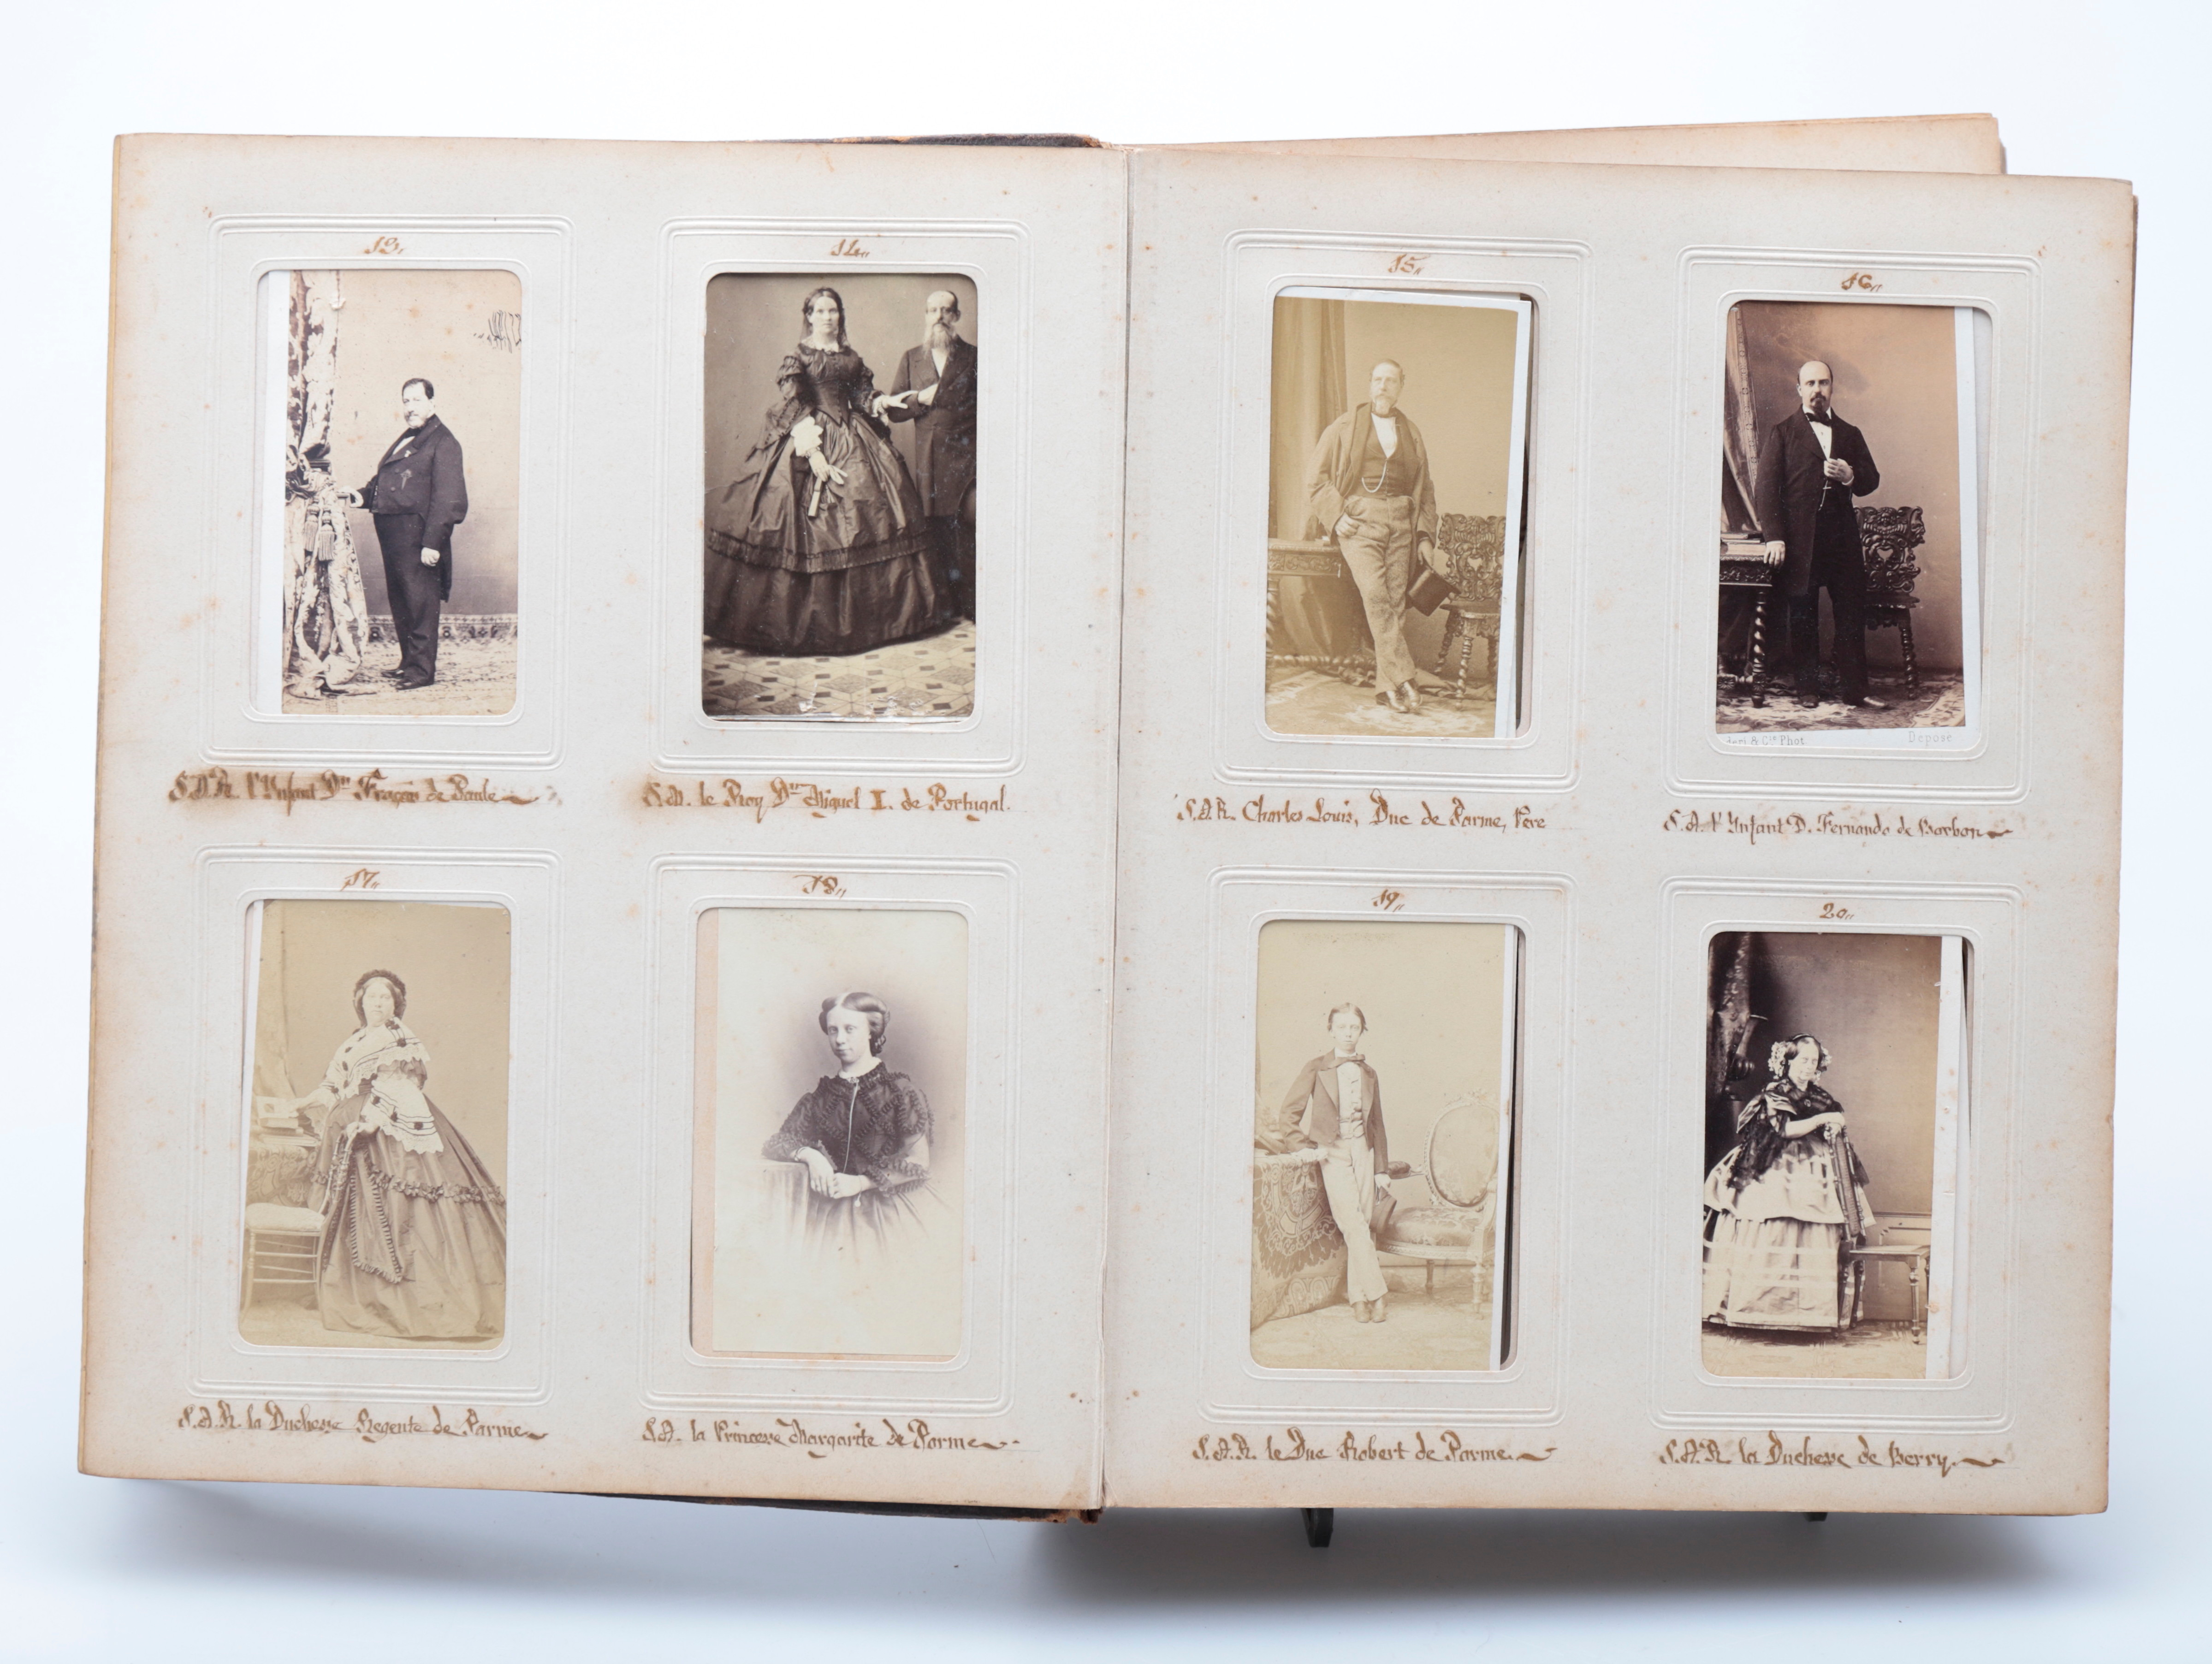 13,,
14,,
S.A.R. l'Ynfant Dn. Françcois de Paule
S.M. le Roy Dn. Miguel I. de Portugal.
17,,
18,,
S.A.R. la Duchesse Regente de Parme
S.A. la Princesse Margarite de Parme
15,,
16,,
& Cie Phot
Déposé
S.A.R. Charles Louis, Duc de Parme, Père
S.A. l'Ynfant D. Fernando de Borbon
19,,
20,,
S.A.R. le Duc Robert de Parme.
S.A.R. la Duchesse de Berry.